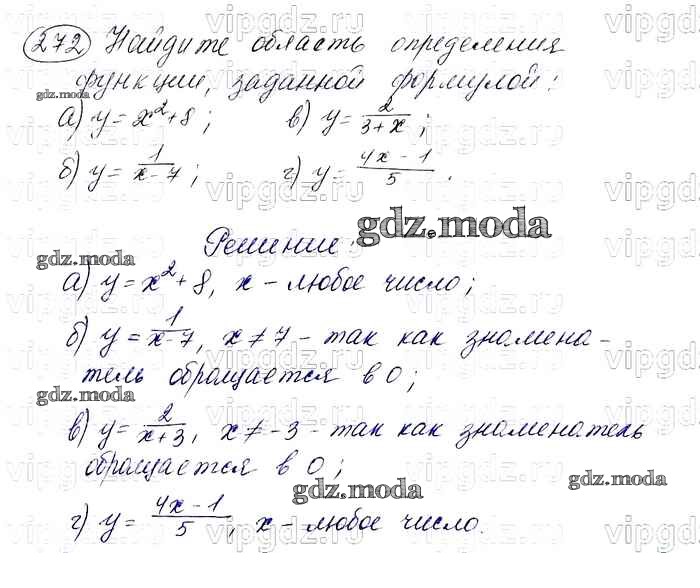 272 Найдите область определения
функции, заданной формулой:
а) y = x² + 8; в) y = 2/(3+x);
б) y = 1/(x-7); г) y = (4x-1)/5.
gdz.moda
Решение:
gdz.moda
а) y = x² + 8, x - любое число;
gdz.moda
б) y = 1/(x-7), x ≠ 7 - так как знамена-
тель обращается в 0;
gdz.moda
в) y = 2/(x+3), x ≠ -3 - так как знаменатель
обращается в 0;
gdz.moda
gdz.moda
г) y = (4x-1)/5, x - любое число.
vipgdz.ru